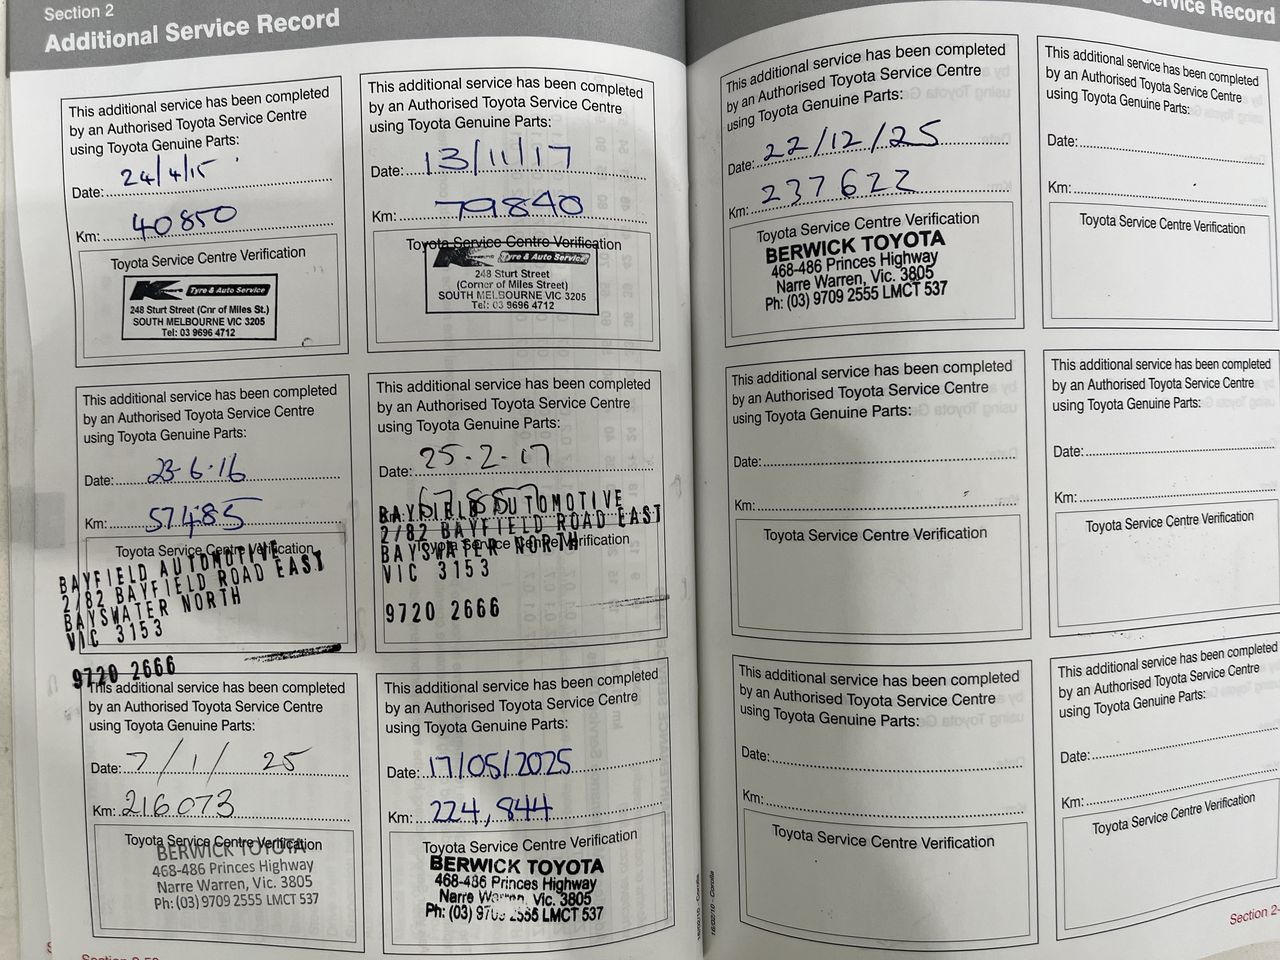 Section 2
Additional Service Record
This additional service has been completed
by an Authorised Toyota Service Centre
using Toyota Genuine Parts:
Date: 24/4/15
Km: 40850
Toyota Service Centre Verification
Tyre & Auto Service
248 Sturt Street (Cnr of Miles St.)
SOUTH MELBOURNE VIC 3205
Tel: 03 9696 4712
This additional service has been completed
by an Authorised Toyota Service Centre
using Toyota Genuine Parts:
Date: 13/11/17
Km: 79840
Toyota Service Centre Verification
Tyre & Auto Service
248 Sturt Street
(Corner of Miles Street)
SOUTH MELBOURNE VIC 3205
Tel: 03 9696 4712
This additional service has been completed
by an Authorised Toyota Service Centre
using Toyota Genuine Parts:
Date: 23-6-16
Km: 57485
Toyota Service Centre Verification
BAYFIELD AUTOMOTIVE
2/82 BAYFIELD ROAD EAST
BAYSWATER NORTH
VIC 3153
9720 2666
This additional service has been completed
by an Authorised Toyota Service Centre
using Toyota Genuine Parts:
Date: 25-2-17
Km:
BAYFIELD AUTOMOTIVE
2/82 BAYFIELD ROAD EAST
Toyota Service Centre Verification
BAYSWATER NORTH
VIC 3153
9720 2666
This additional service has been completed
by an Authorised Toyota Service Centre
using Toyota Genuine Parts:
Date: 7/1/25
Km: 216073
Toyota Service Centre Verification
BERWICK TOYOTA
468-486 Princes Highway
Narre Warren, Vic. 3805
Ph: (03) 9709 2555 LMCT 537
This additional service has been completed
by an Authorised Toyota Service Centre
using Toyota Genuine Parts:
Date: 17/05/2025
Km: 224,844
Toyota Service Centre Verification
BERWICK TOYOTA
468-486 Princes Highway
Narre Warren, Vic. 3805
Ph: (03) 9709 2555 LMCT 537
Service Record
This additional service has been completed
by an Authorised Toyota Service Centre
using Toyota Genuine Parts:
Date: 22/12/25
Km: 237622
Toyota Service Centre Verification
BERWICK TOYOTA
468-486 Princes Highway
Narre Warren, Vic. 3805
Ph: (03) 9709 2555 LMCT 537
This additional service has been completed
by an Authorised Toyota Service Centre
using Toyota Genuine Parts:
Date:
Km:
Toyota Service Centre Verification
This additional service has been completed
by an Authorised Toyota Service Centre
using Toyota Genuine Parts:
Date:
Km:
Toyota Service Centre Verification
This additional service has been completed
by an Authorised Toyota Service Centre
using Toyota Genuine Parts:
Date:
Km:
Toyota Service Centre Verification
This additional service has been completed
by an Authorised Toyota Service Centre
using Toyota Genuine Parts:
Date:
Km:
Toyota Service Centre Verification
This additional service has been completed
by an Authorised Toyota Service Centre
using Toyota Genuine Parts:
Date:
Km:
Toyota Service Centre Verification
Section 2-